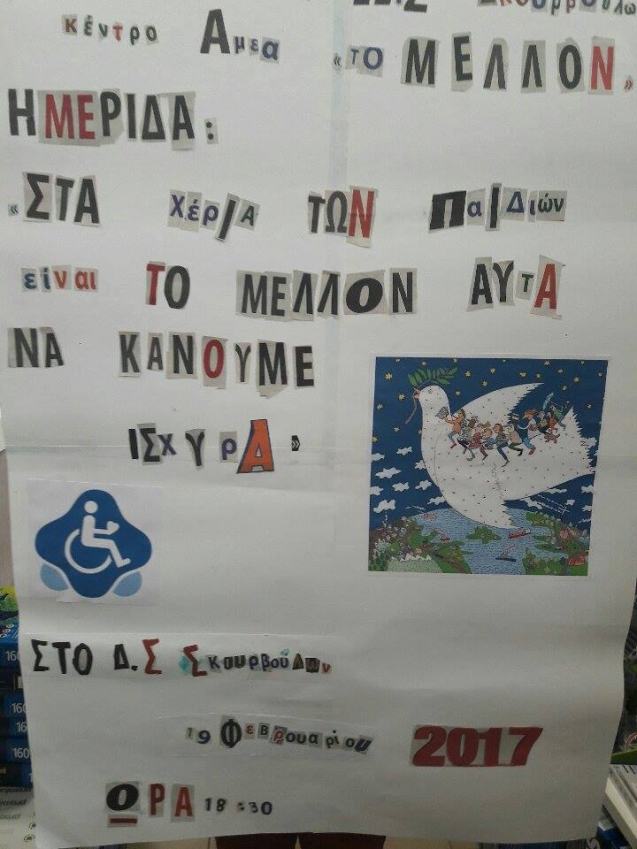 Κέντρο Αμεα «ΤΟ ΜΕΛΛΟΝ»
ΗΜΕΡΙΔΑ:
«ΣΤΑ χέρΙΑ ΤΩΝ ΠαΙΔιών
είναι ΤΟ ΜΕΛΛΟΝ ΑΥτΑ
ΝΑ ΚΑΝΟΥΜΕ
ΙΣχΥρΑ»
ΣΤΟ Δ.Σ Σκουρβούλων
19 Φεβρουαρίου 2017
ΟΡΑ 18:30